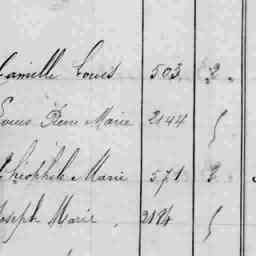 Camille Louis 503 2
Louis Pierre Marie 2144
Théophile Marie 571 2
Joseph Marie 2184